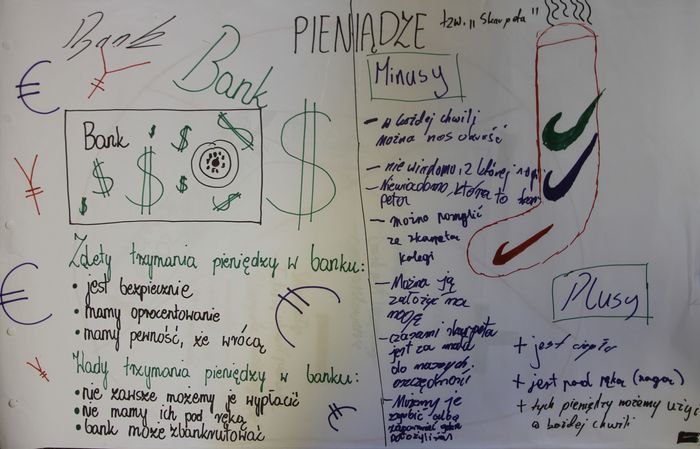 PIENIĄDZE
tzw. „Skarpeta"
Bank
Bank
Bank
Zalety trzymania pieniędzy w banku:
• jest bezpiecznie
• mamy oprocentowanie
• mamy pewność, że wrócą
Wady trzymania pieniędzy w banku:
• nie zawsze możemy je wypłacić
• nie mamy ich pod ręką
• bank może zbankrutować
Minusy
– w każdej chwili
można nas okraść
– nie wiadomo, z której
– Niewiadomo, która to
– można pomylić
ze skarpetą
kolegi
– Można ją
założyć na
nogę
– czasami skarpeta
jest za mała
do naszych
oszczędności
– Możemy je
zgubić albo
zapomnieć gdzie
położyliśmy
Plusy
+ jest ciepła
+ jest pod ręką
+ tych pieniędzy możemy użyć
w każdej chwili